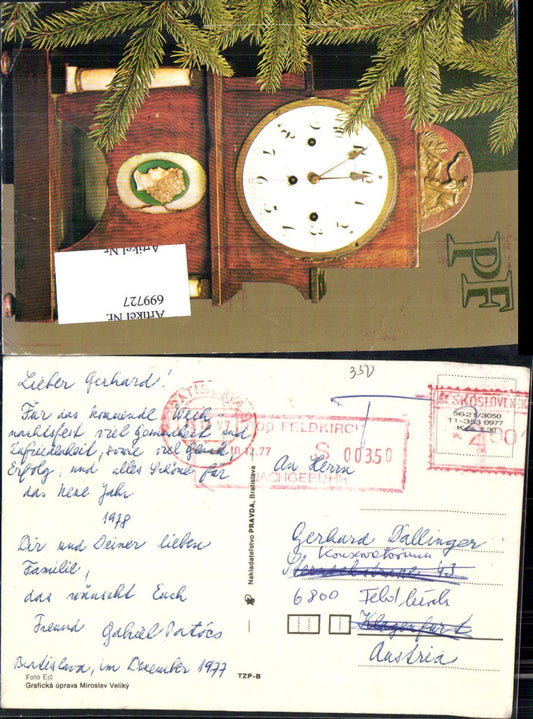 PF
Artikel Nr.
699727
Artikel Nr.
350
Lieber Gerhard!
Für das kommende Weih-
nachtsfest viel Gesundheit und
Zufriedenheit, sowie viel Glück
Erfolg, und alles Schöne für
das neue Jahr
1978
Dir und Deiner lieben
Familie,
das wünscht Euch
Freund Gabriel
Bratislava, im Dezember 1977
Foto Ejč
Grafická úprava Miroslav Veliký
TZP-B
Nakladateľstvo PRAVDA, Bratislava
BRATISLAVA
FELDKIRCH
S 00350
NACHGEBÜHR
10.12.77
ČESKOSLOVENSKO
SG21/3050
11-353 0977
Kčs 1,30
An Herrn
Gerhard Dallinger
Konservatorium
6800 Feldkirch
Klagenfurt
Austria